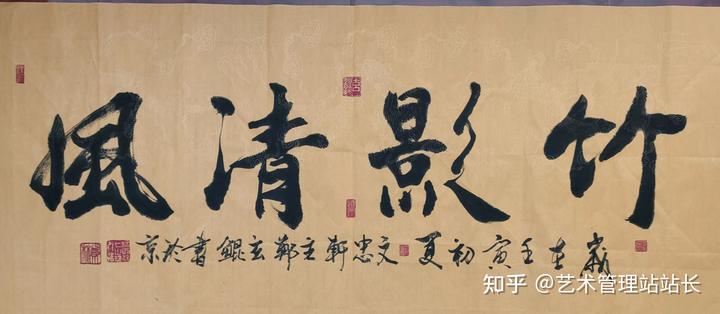 竹影清風
歲在壬寅初夏文忠軒主鄭玄鯤書於京
知乎 @艺术管理站站长